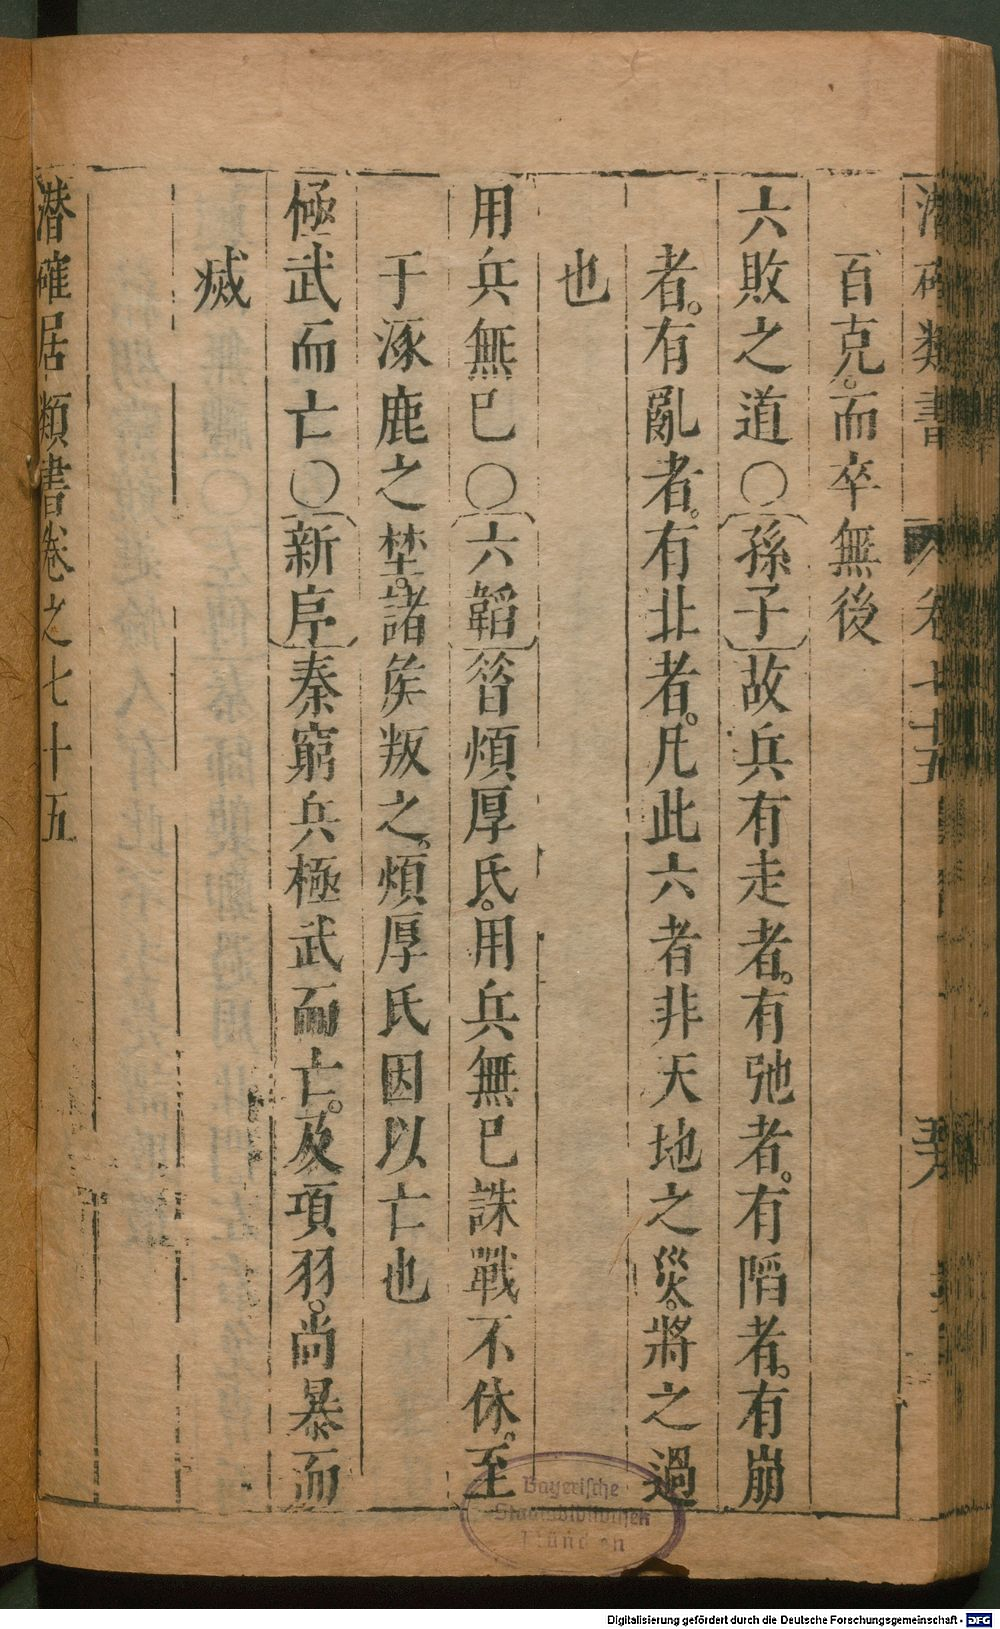 百克。而卒無後
六敗之道〇〔孫子〕故兵有走者。有弛者。有陷者。有崩
者。有亂者。有北者。凡此六者非天地之災。將之過
也
用兵無已〇〔六韜〕昝煩厚氏。用兵無已誅戰不休。至
于涿鹿之埜。諸矦叛之。煩厚氏因以亡也
極武而亡〇〔新序〕秦窮兵極武而亡。及項羽。尚暴而
㓕
潜確居類書卷之七十五
Bayerische
Staatsbibliothek
München
Digitalisierung gefördert durch die Deutsche Forschungsgemeinschaft - DFG